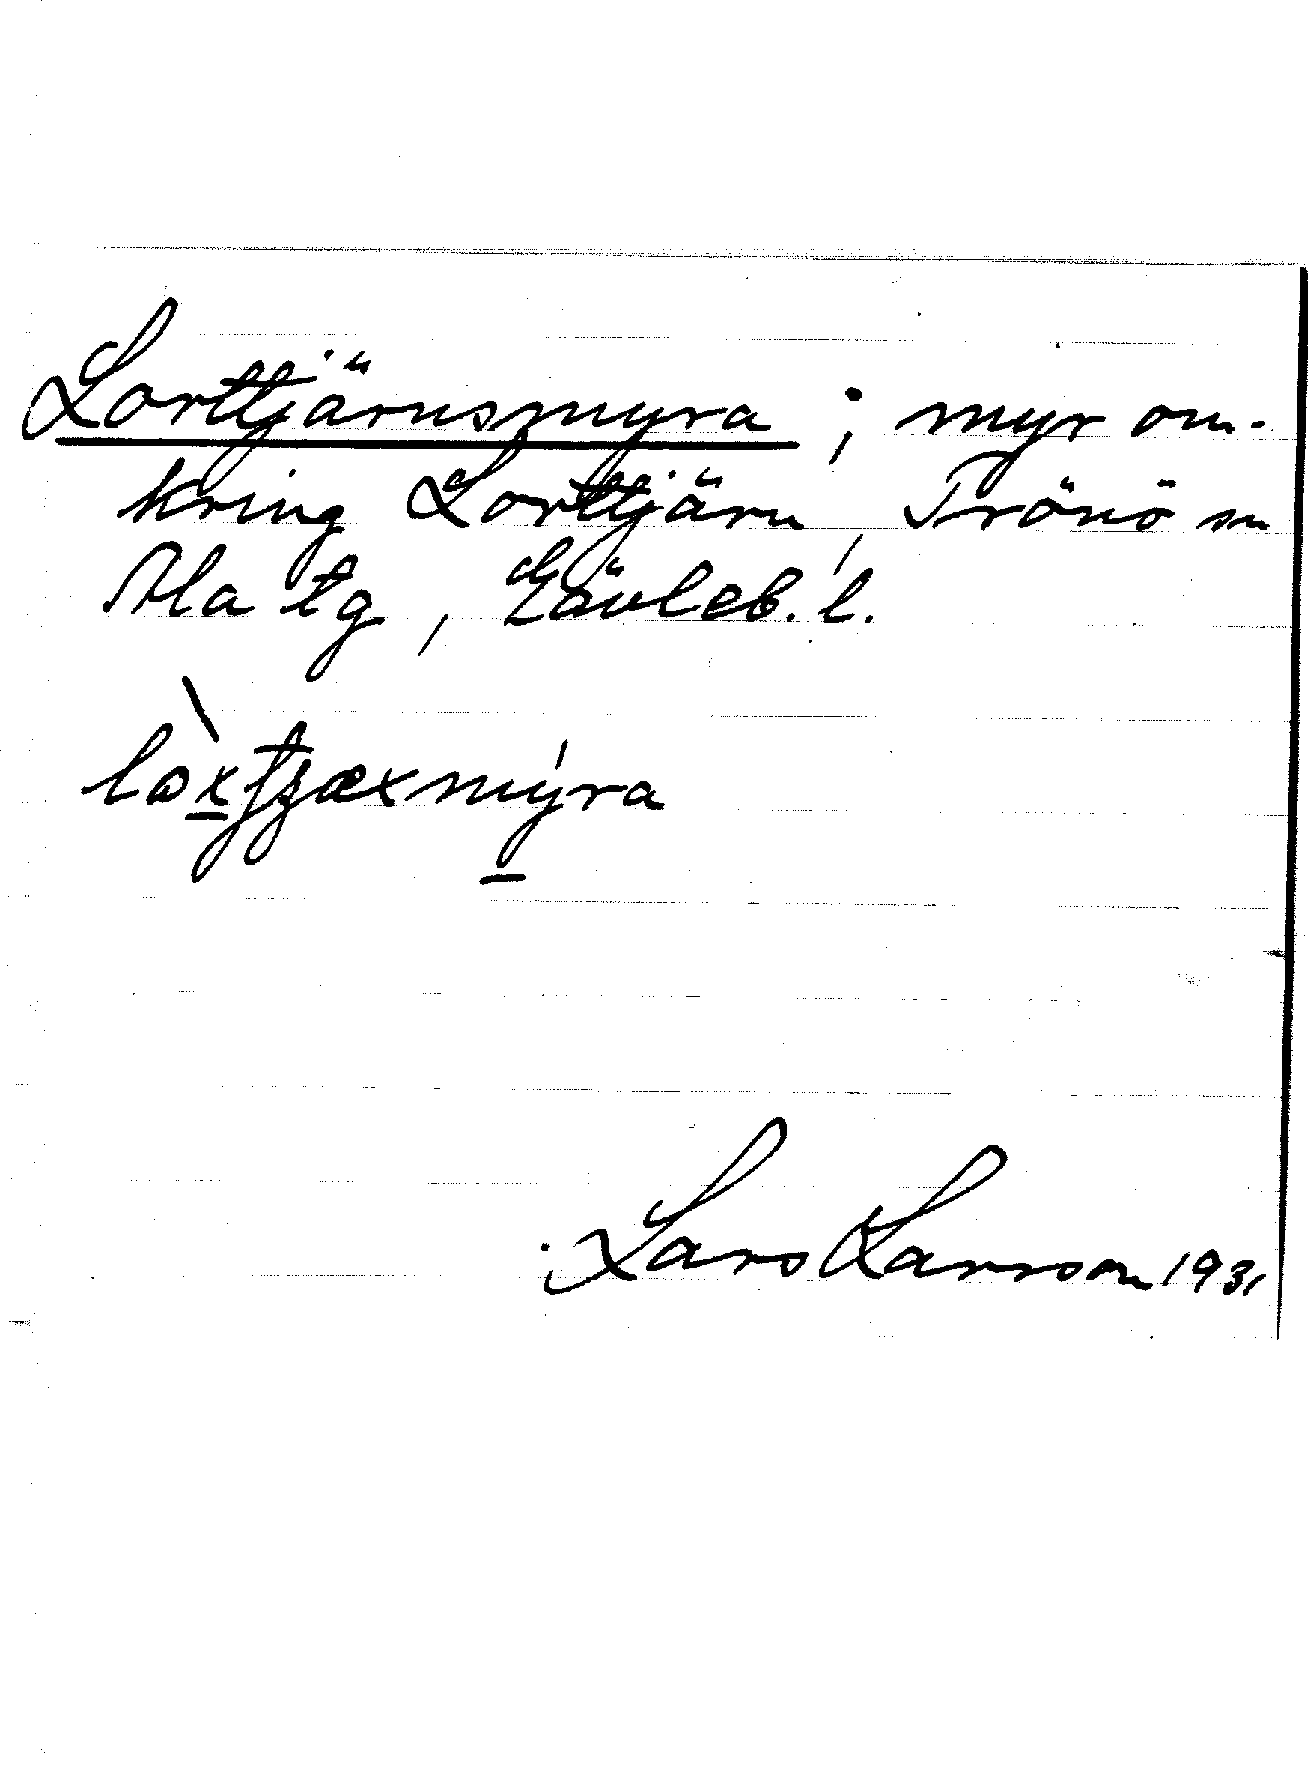 Lorttjärnsmyra ; myr om-
kring Lorttjärn, Trönö sn
Ala tg, Gävleb. l.
Lars Larsson 1931